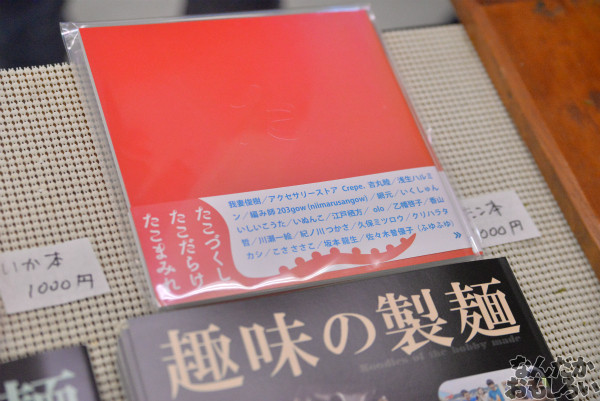 たこ
たこづくし
たこだらけ
たこまみれ
我妻俊樹／アクセサリーストア Crepe. 衣丸睦／浅生ハルミ
ン／編み師 203gow (niimarusangow)／網元／いくしゅん
いしいこうた／いぬんこ／江戸栖方／olo／乙幡啓子／香山
哲／川瀬一絵／紀ノ川つかさ／久保ミツロウ／クリハラタ
カシ／こさささこ／坂本龍生／佐々木智優子（ふゆふゆ）
いか本
1000円
本
1000円
趣味の製麺
Noodles of the hobby made
麺
なんだか
おもしろい